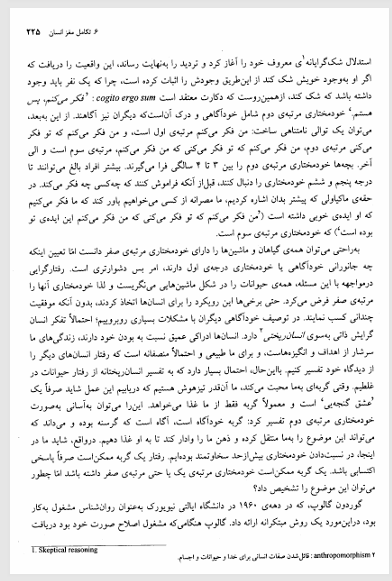 ۶. تکامل مغز انسان ۲۲۵
استدلال شک‌گرایانه۱ی معروف خود را آغاز کرد و تردید را به‌نهایت رساند، این واقعیت را دریافت که
اگر او به‌وجود خویش شک کند از این‌طریق وجودش را اثبات کرده است، چرا که یک نفر باید وجود
داشته باشد که شک کند، ازهمین‌روست که دکارت معتقد است cogito ergo sum : "فکر می‌کنم، پس
هستم." خودمختاری مرتبه‌ی دوم شامل خودآگاهی و درک آن‌است‌که دیگران نیز آگاهند. از این به‌بعد،
می‌توان یک توالی نامتناهی ساخت: من فکر می‌کنم مرتبه‌ی اول است، و من فکر می‌کنم که تو فکر
می‌کنی مرتبه‌ی دوم، من فکر می‌کنم که تو فکر می‌کنی که من فکر می‌کنم، مرتبه‌ی سوم است و الی
آخر. بچه‌ها خودمختاری مرتبه‌ی دوم را بین ۳ تا ۴ سالگی فرا می‌گیرند. بیشتر افراد بالغ می‌توانند تا
درجه پنجم و ششم خودمختاری را دنبال کنند، قبل‌از آنکه فراموش کنند که‌چه‌کسی چه فکر می‌کند. در
حقه‌ی ماکیاولی که پیشتر بدان اشاره کردیم، ما مصرانه از کسی می‌خواهیم باور کند که ما فکر می‌کنیم
که او ایده‌ی خوبی داشته است ("من فکر می‌کنم که تو فکر می‌کنی که من فکر می‌کنم این ایده‌ی تو
بوده است") که خودمختاری مرتبه‌ی سوم است.
به‌راحتی می‌توان همه‌ی گیاهان و ماشین‌ها را دارای خودمختاری مرتبه‌ی صفر دانست امّا تعیین اینکه
چه جانورانی خودآگاهی یا خودمختاری درجه‌ی اول دارند، امر بس دشوارتری است. رفتارگرایی
درمواجهه با این مسئله، همه‌ی حیوانات را در شکل ماشین‌هایی می‌نگریست و لذا خودمختاری آنها را
مرتبه‌ی صفر فرض می‌کرد. حتی برخی‌ها این رویکرد را برای انسان‌ها اتخاذ کردند، بدون آنکه موفقیت
چندانی کسب نمایند. در توصیف خودآگاهی دیگران با مشکلات بسیاری روبروییم؛ احتمالاً تفکر انسان
گرایش ذاتی به‌سوی انسان‌ریختی۲ دارد. انسان‌ها ادراکی عمیق نسبت به بودن خود دارند، زندگی‌های ما
سرشار از اهداف و انگیزه‌هاست، و برای ما طبیعی و احتمالاً منصفانه است که رفتار انسان‌های دیگر را
از دیدگاه خود تفسیر کنیم. بااین‌حال، احتمال بسیار دارد که به تفسیر انسان‌ریختانه از رفتار حیوانات در
غلطیم. وقتی گربه‌ای به‌ما محبت می‌کند، ما آن‌قدر تیزهوش هستیم که دریابیم این عمل شاید صرفاً یک
"عشق گنجه‌یی" است و معمولاً گربه فقط از ما غذا می‌خواهد. این‌را می‌توان به‌آسانی به‌صورت
خودمختاری مرتبه‌ی دوم تفسیر کرد: گربه خودآگاه است، آگاه است که گرسنه بوده و می‌داند که
می‌تواند این موضوع را به‌ما منتقل کرده و ذهن ما را وادار کند تا به او غذا دهیم. درواقع، شاید ما در
اینجا، در نسبت‌دادن خودمختاری بیش‌ازحد سخاوتمند بوده‌ایم. رفتار یک گربه ممکن‌است صرفاً پاسخی
اکتسابی باشد. یک گربه ممکن‌است خودمختاری مرتبه‌ی یک یا حتی مرتبه‌ی صفر داشته باشد امّا چطور
می‌توان این موضوع را تشخیص داد؟
گوردون گالوپ، که در دهه‌ی ۱۹۶۰ در دانشگاه ایالتی نیویورک به‌عنوان روان‌شناس مشغول به‌کار
بود، دراین‌مورد یک روش مبتکرانه ارائه داد. گالوپ هنگامی‌که‌مشغول اصلاح صورت خود بود دریافت
1. Skeptical reasoning
۲ anthropomorphism : قائل‌شدن صفات انسانی برای خدا و حیوانات و اجسام.